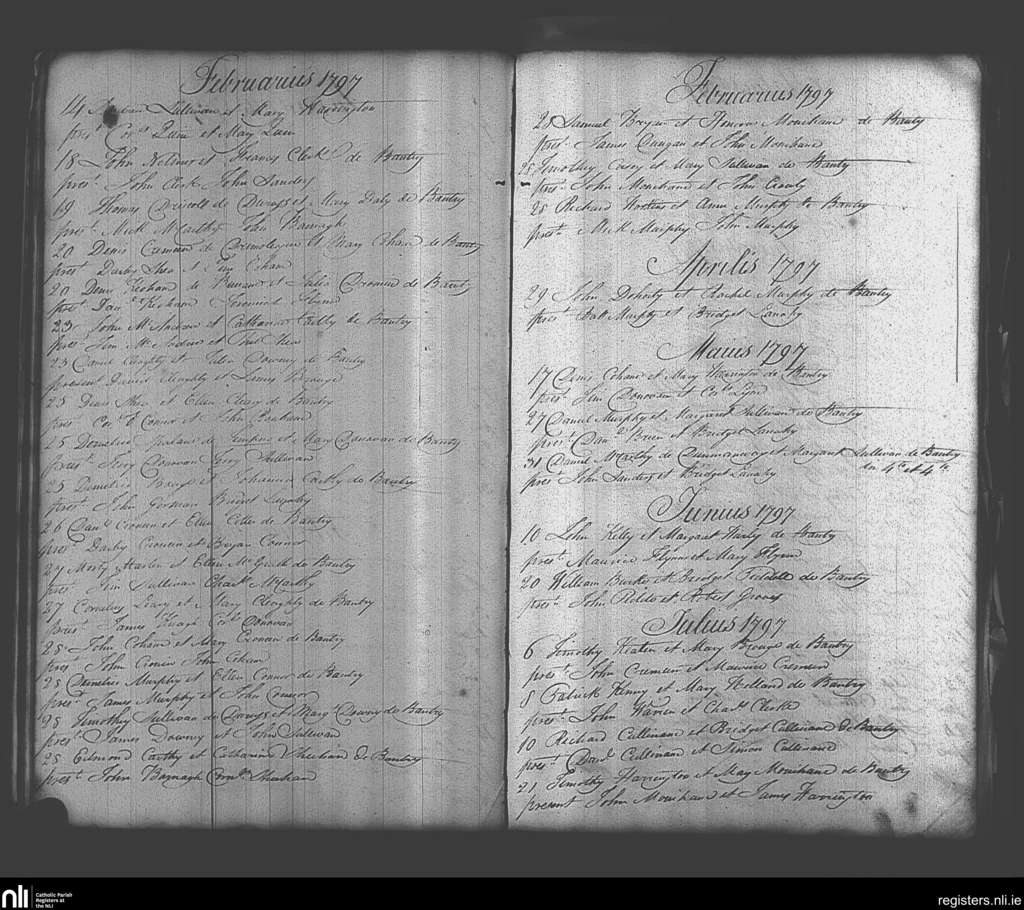 Februarius 1797
14 Sullivan et Mary Harrington
pres.t Cor.s Quin et Mary Quin
18 John Nelions et Francis Clerk de Bantry
pres.t John Clerk John Sanders
19 Thomas Driscoll de Durass et Mary Daly de Bantry
pres.t Mick McCarthy John Barnagh
20 Denis Cremeen de et Mary Cohane de Bantry
pres.t Darby Shea et Tim Cohane
20 Denis Keohane de et Julia Cronin de Bantry
pres.t Dan.l Keohane Jeremiah
23 John McAndrew et Catharine Reilly de Bantry
pres.t Tim McAndrew et Shea
23 Daniel et Ellen Downy de Bantry
present Daniel et James
25 Denis Shea et Ellen Cleary de Bantry
pres.t Cor.s O Connor et John
25 Demetrius de et Mary Donovan de Bantry
pres.t Jerry Donovan Jerry Sullivan
25 Demetrius et Johanna Carthy de Bantry
pres.t John Gorman Bridget
26 Dan.l Cronin et Ellen de Bantry
pres.t Darby Cronin et Bryan Connor
27 Morty Harten et Ellen McGrath de Bantry
pres.t Tim Sullivan Cha.s McCarthy
27 Cornelius Leary et Mary de Bantry
pres.t James Cor.s Donovan
28 John Cohane et Mary Cronin de Bantry
pres.t John Cronin John Cohane
28 Cornelius Murphy et Ellen Connor de Bantry
pres.t James Murphy et John Connor
28 Timothy Sullivan de et Mary Downy de Bantry
pres.t James Downy et John Sullivan
28 Edmond Carthy et Catharine Sheehane de Bantry
pres.t John Barnagh Corn.s Sheehane
Februarius 1797
28 Samuel Bryan et Honora Monihane de Bantry
pres.t James et John Monihane
28 Timothy Casey et Mary Sullivan de Bantry
pres.t John Monihane et John Crowly
28 Richard et Anne Murphy de Bantry
pres.t Mick Murphy John Murphy
Aprilis 1797
29 John Doherty et Rachel Murphy de Bantry
pres.t Pat Murphy et Bridget Lanaby
Maius 1797
17 Denis Cohane et Mary Harrington de Bantry
pres.t Tim Donovan et Cor.s Lyne
27 Daniel Murphy et Margaret Sullivan de Bantry
pres.t Dan.l Brien et Bridget Lanaby
31 Daniel McCarthy de Dunmanway et Margaret Sullivan de Bantry
in 4.o et 4.o
pres.t John Sanders et Bridget Lanaby
Junius 1797
10 John Kelly et Margaret Hurly de Bantry
pres.t Maurice Flynn et Mary Flynn
20 William Burke et Bridget de Bantry
pres.t John et Robert Groves
Julius 1797
6 Timothy Keaten et Mary de Bantry
pres.t John Cremeen et Maurice Cremeen
8 Patrick Henry et Mary Holland de Bantry
pres.t John Warren et Cha.s Clerke
10 Richard Cullinane et Bridget Cullinane de Bantry
pres.t Dan.l Cullinane et Simon Cullinane
21 Timothy Harrington et Mary Monihane de Bantry
present John Monihane et James Harrington
nli
Catholic Parish
Registers at
the NLI
registers.nli.ie